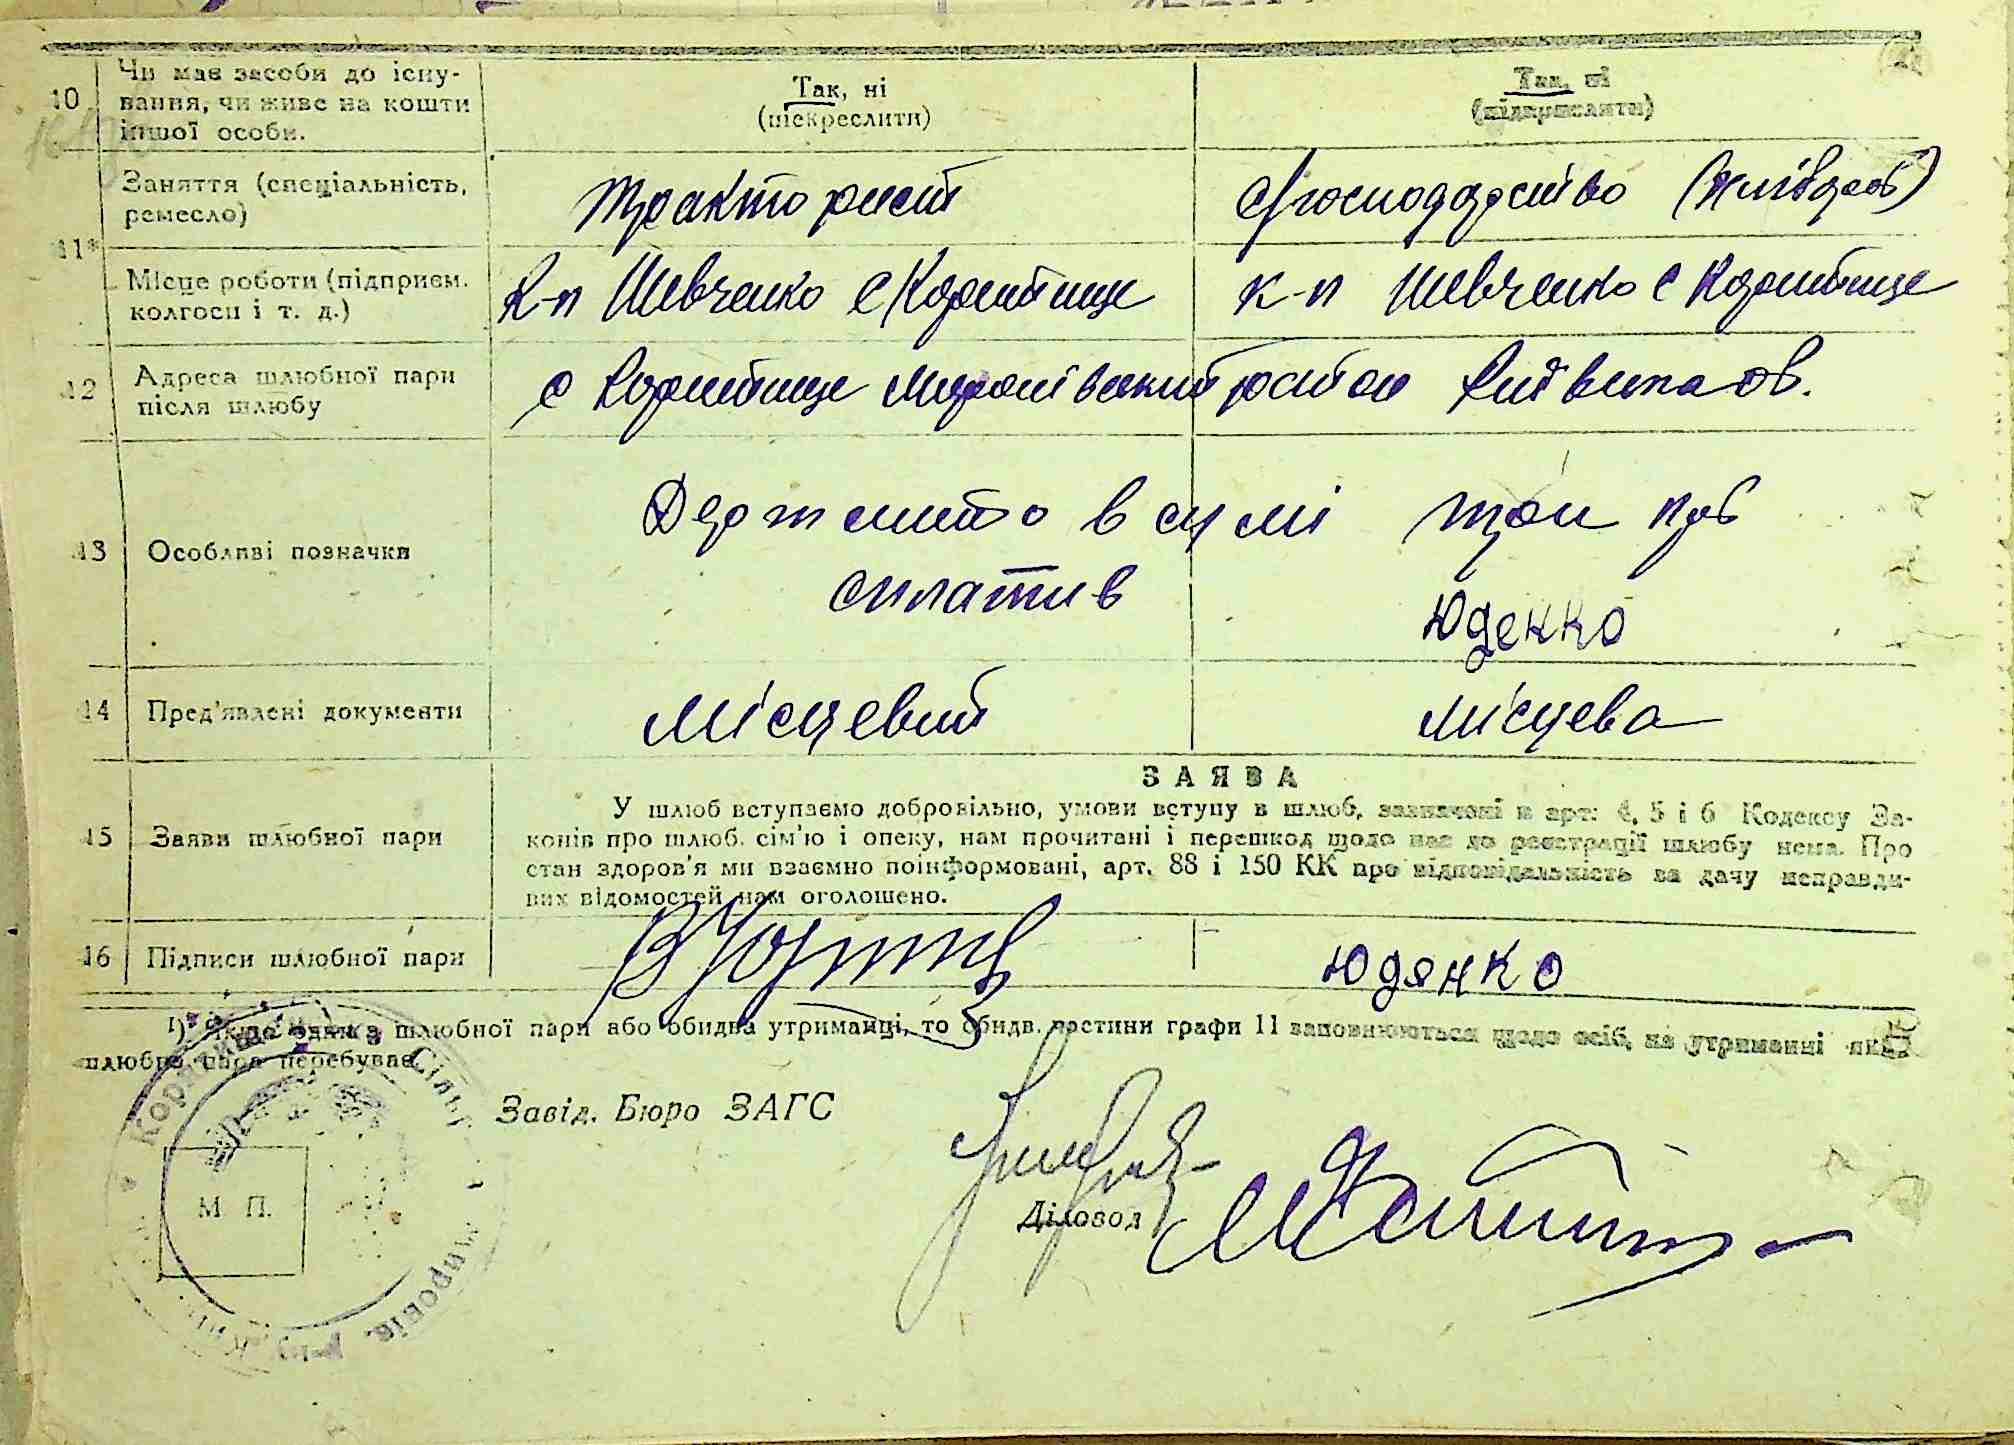 10
Чи має засоби до існу-
вання, чи живе на кошти
іншої особи.
Так, ні
(підкреслити)
Так, ні
(підкреслити)
11*
Заняття (спеціальність,
ремесло)
Тракторист
с/господарство
Місце роботи (підприєм.
колгосп і т. д.)
К-п Шевченко с Коритище
к-п Шевченко с Коритище
12
Адреса шлюбної пари
після шлюбу
с Коритище Миронівський
13
Особливі позначки
Держмито в сумі три крб
сплатив
Юденко
14
Пред'явлені документи
місцевий
місцева
15
Заяви шлюбної пари
ЗАЯВА
У шлюб вступаємо добровільно, умови вступу в шлюб, зазначені в арт: 4, 5 і 6 Кодексу За-
конів про шлюб. сім'ю і опеку, нам прочитані і перешкод щодо нас до реєстрації шлюбу нема. Про
стан здоров'я ми взаємно поінформовані, арт. 88 і 150 КК про відповідальність за дачу неправди-
вих відомостей нам оголошено.
16
Підписи шлюбної пари
Юдянко
1) Якщо один з шлюбної пари або обидва утриманці, то обидв. частини графи 11 заповнюються щодо осіб, на утриманні яких
шлюбна пара перебуває.
Завід. Бюро ЗАГС
М. П.
Діловод